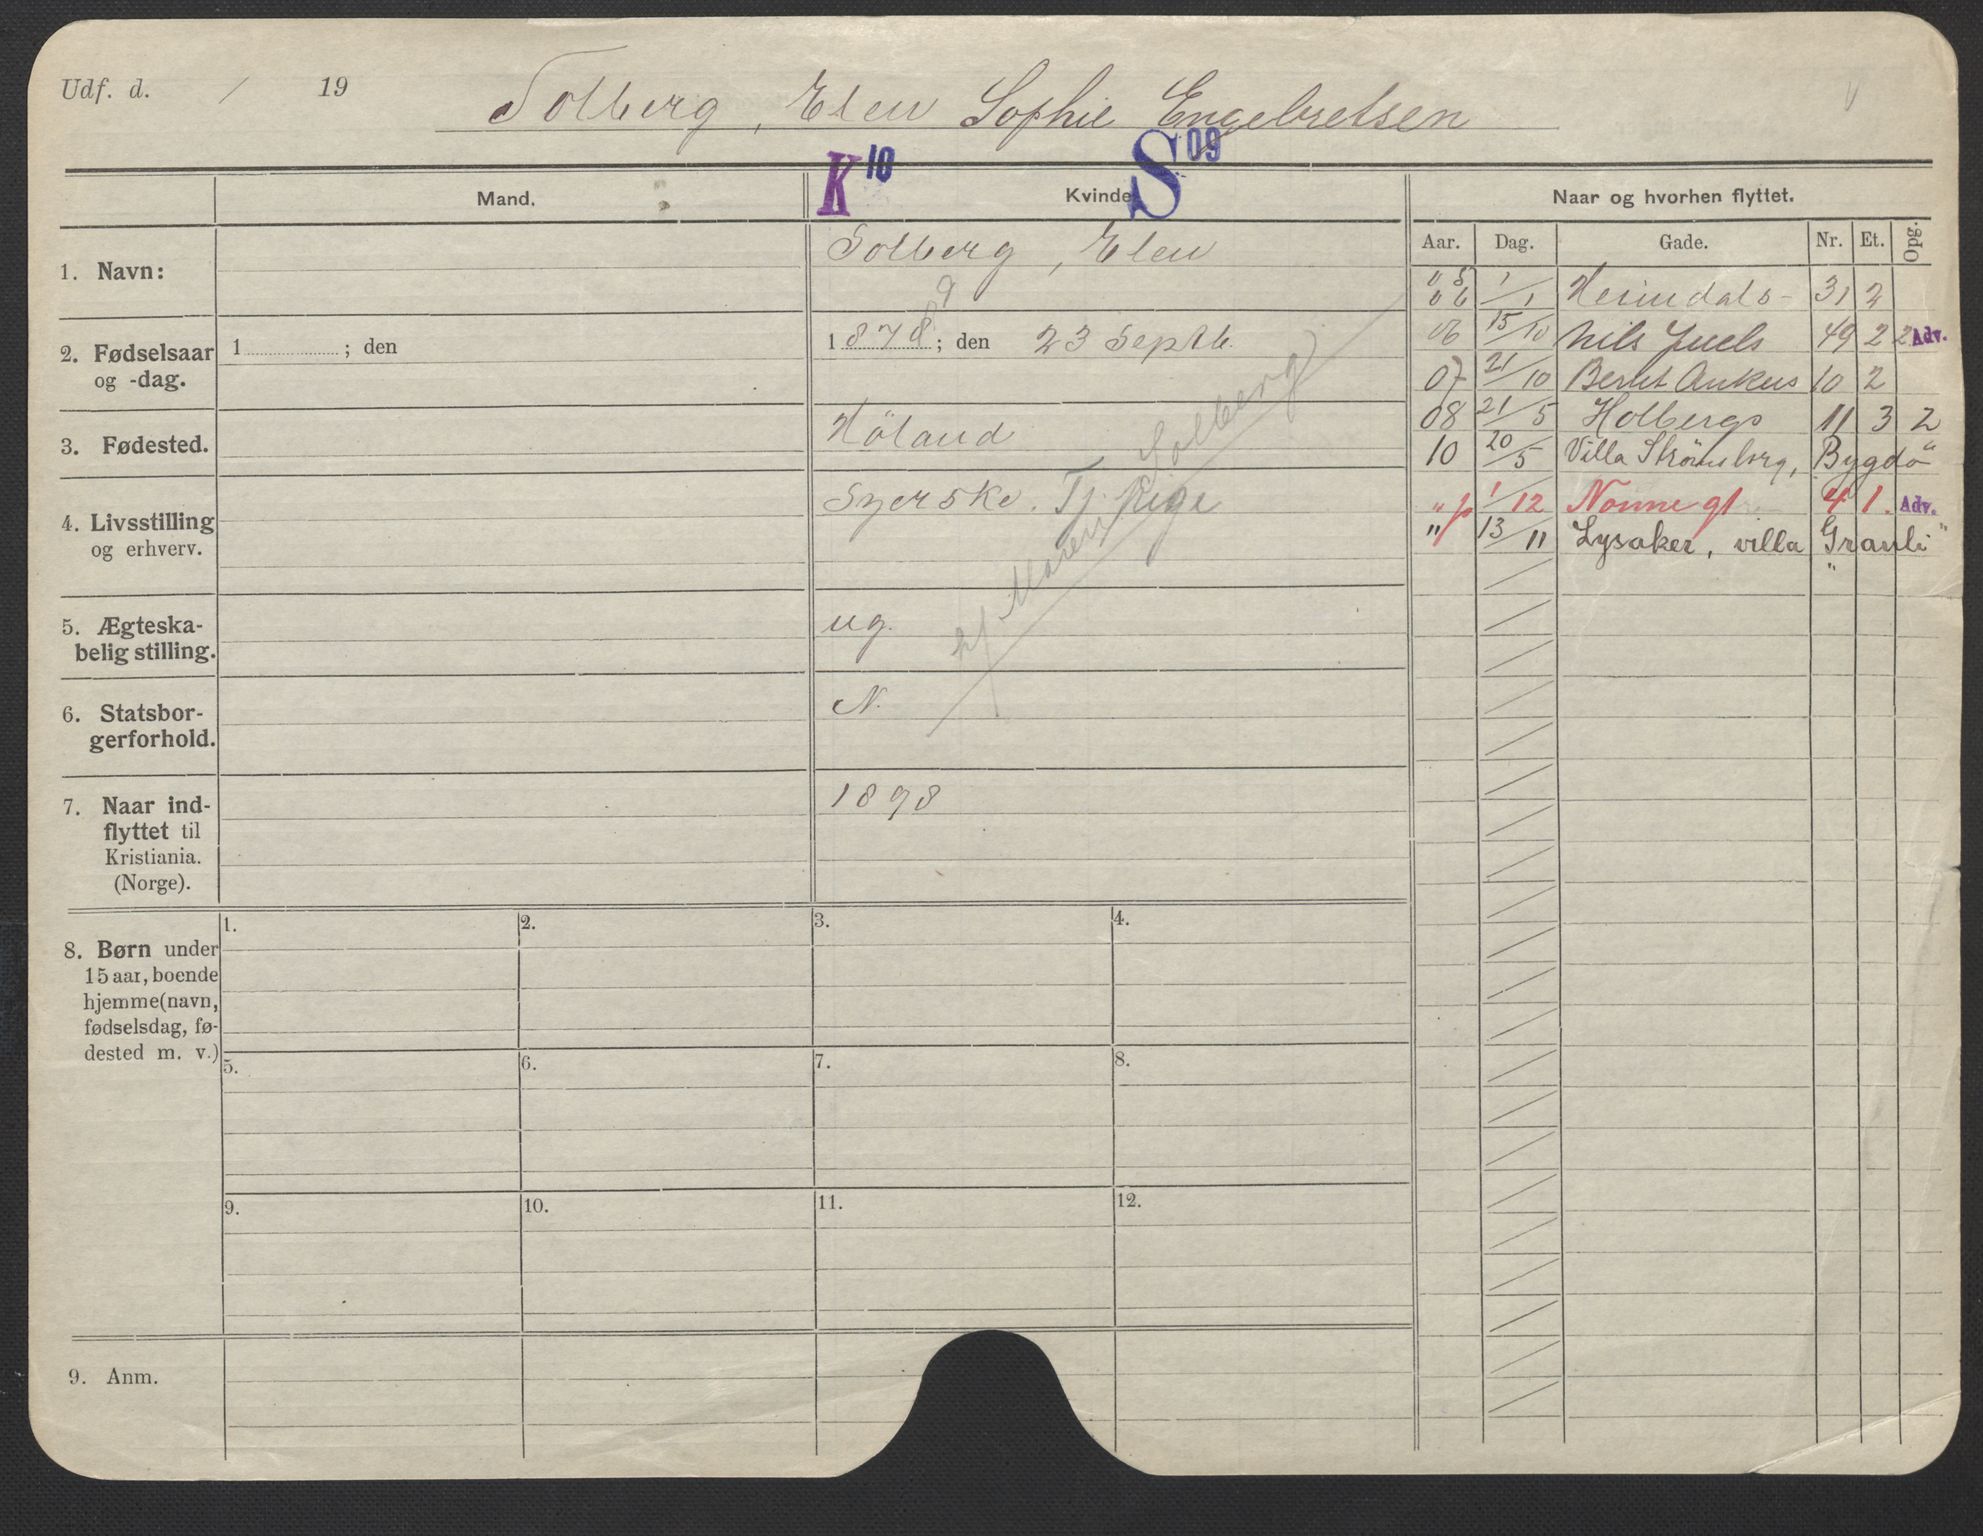 Udf. d. / 19 Solberg, Elen Sophie Engebretsen
K 10 S 09
Mand. Kvinde. Naar og hvorhen flyttet.
Aar. Dag. Gade. Nr. Et. Opg.
1. Navn: Solberg, Elen
2. Fødselsaar og -dag. 1 ; den
1878 ; den 23 Septb.
9
3. Fødested. Höland
4. Livsstilling og erhverv. Syerske. Tj. Pige
5. Ægteskabelig stilling. ug.
6. Statsborgerforhold. N.
7. Naar indflyttet til Kristiania. (Norge). 1898
Solberg)
05 1/
06 /1 Heimdals- 31 2
06 15/10 Nils Juels 49 2 2 Adv.
07 21/10 Bernt Ankers 10 2
08 21/5 Holbergs 11 3 2
10 20/5 Villa Strömsborg, Bygdö
" 1/12 Nonnegt 4 1. Adv.
" 13/11 Lysaker, villa "Granli"
8. Børn under
15 aar, boende
hjemme (navn,
fødselsdag, fø-
dested m. v.)
1. 2. 3. 4.
5. 6. 7. 8.
9. 10. 11. 12.
9. Anm.